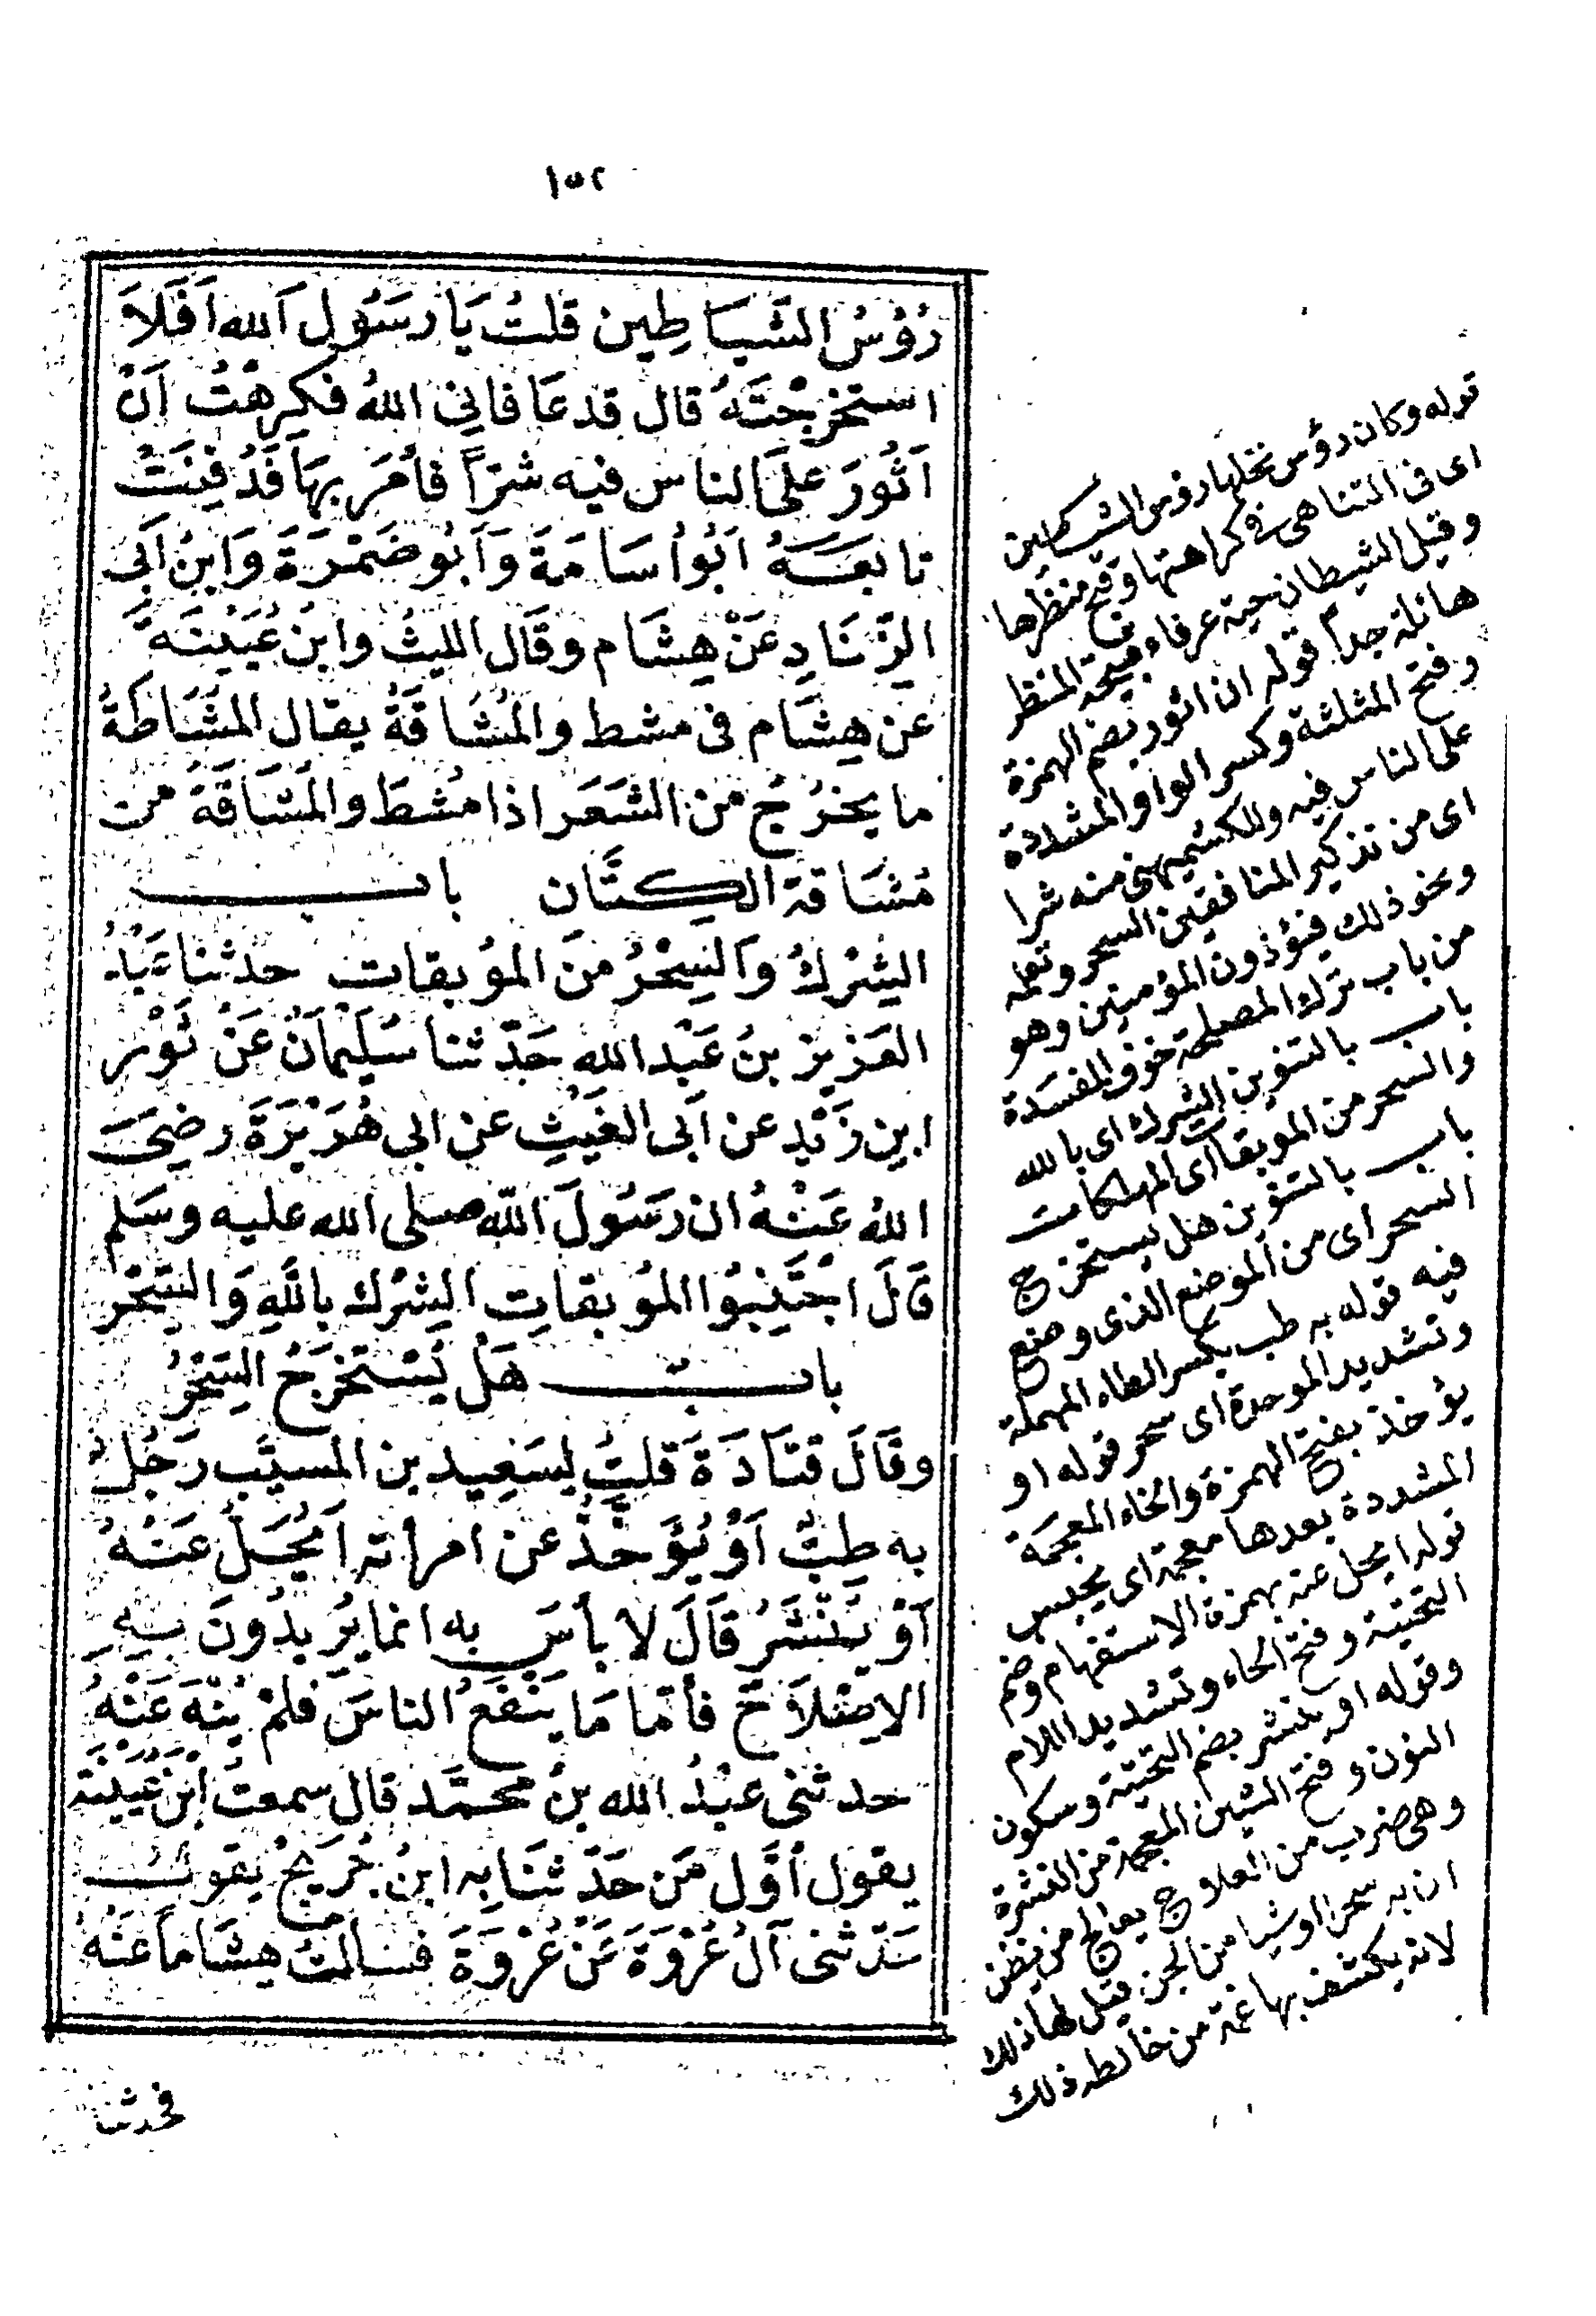 ١٥٢
رُؤُسُ الشَّيَاطِين قلتُ يَا رسَوُل اَلله اَفَلاَ
استخرجْتَهُ قال قد عَافاني اللهُ فكرِهْتُ اَنْ
اَثُورَ علىَ الناس فيه شرّاً فأمَر بهَا فَدُفِنَتْ
تابعَهُ اَبُو اُسَامَةَ وَاَبُو ضَمْرَةَ وَابنُ اَبى
الزّنَادِ عَنْ هِشَام وقَال الليثُ وابنُ عُيَيْنَةَ
عَن هِشَام فى مشط والمُشَاقَةُ يقال المشَاطَةُ
ما يخرُجُ من الشعَر اذا مُشطَ والمشَاقَةَ من
مُشَاقة الكِتَّان باب
الشِرْكُ وَالسِحْرُ منَ الموُبقات حدثنا عَبْدُ
العَزيز بنُ عَبْد الله حَدّثنا سُلَيْمانُ عَنْ ثَوْر
ابن زَيْدٍ عن اَبى الغَيْثِ عن ابى هُرَيْرَةَ رضِىَ
اللهُ عَنْهُ ان رَسُولَ اللهِ صلى الله عليه وسَلم
قَالَ اجْتَنِبُوا الموُبقاتِ الشِرْك باللهِ وَالسِّحْر
باب هَلْ يُسْتخرَجُ السِحْرُ
وقَالَ قتَادَةَ قلتُ لِسَعِيد بن المسيَّب رَجُلٌ
به طِبٌّ اَوْ يُؤَخَّذُ عن امرأته اَيُحَلُّ عَنْهُ
اَوْ يُنْشَرُ قَالَ لا بأسَ به انما يُريدُونَ بهِ
الاِصْلاَحَ فأمّا مَا يَنْفَعُ الناسَ فلمْ يُنْهَ عَنْهُ
حدثنى عبْدُ الله بنُ محمَّد قال سمعتُ ابْنَ عُيَيْنَةَ
يقول أوَّل مَن حَدّثنَا به ابنُ جُرَيْجٍ يَقولُ
حَدّثنى آلُ عُرْوَةَ عَنْ عُرْوَةَ فسألتُ هِشَاماً عَنْهُ
فحدثنا
قوله وكان رؤس نخلها رؤس الشياطين
اى فى التناهى فى كراهتها وقبح منظرها
وقيل الشيطان حية عرفاء قبيحة المنظر
هائلة جداً قوله ان اثور بضم الهمزة
وفتح المثلثة وكسر الواو المشددة
على الناس فيه وللكشميهنى منه شرا
اى من تذكير المنافقين السحر وتعلمه
ونحو ذلك فيؤذون المؤمنين وهو
من باب ترك المصلحة خوف المفسدة
باب بالتنوين الشرك اى بالله
والسحر من الموبقات اى المهلكات
باب بالتنوين هل يستخرج
السحر اى من الموضع الذى وضع
فيه قوله به طب بكسر الطاء المهملة
وتشديد الموحدة اى سحر قوله او
يؤخذ بفتح الهمزة والخاء المعجمة
المشددة بعدها معجمة اى يحبس
قوله ايحل عنه بهمزة الاستفهام وضم
التحتية وفتح الحاء وتشديد اللام
وقوله او ينشر بضم التحتية وسكون
النون وفتح الشين المعجمة من النشرة
وهى ضرب من العلاج يعالج من يظن
ان به سحرا اوشيا من الجن قيل لها ذلك
لانه يكشف بها غمة من خالطه ذلك